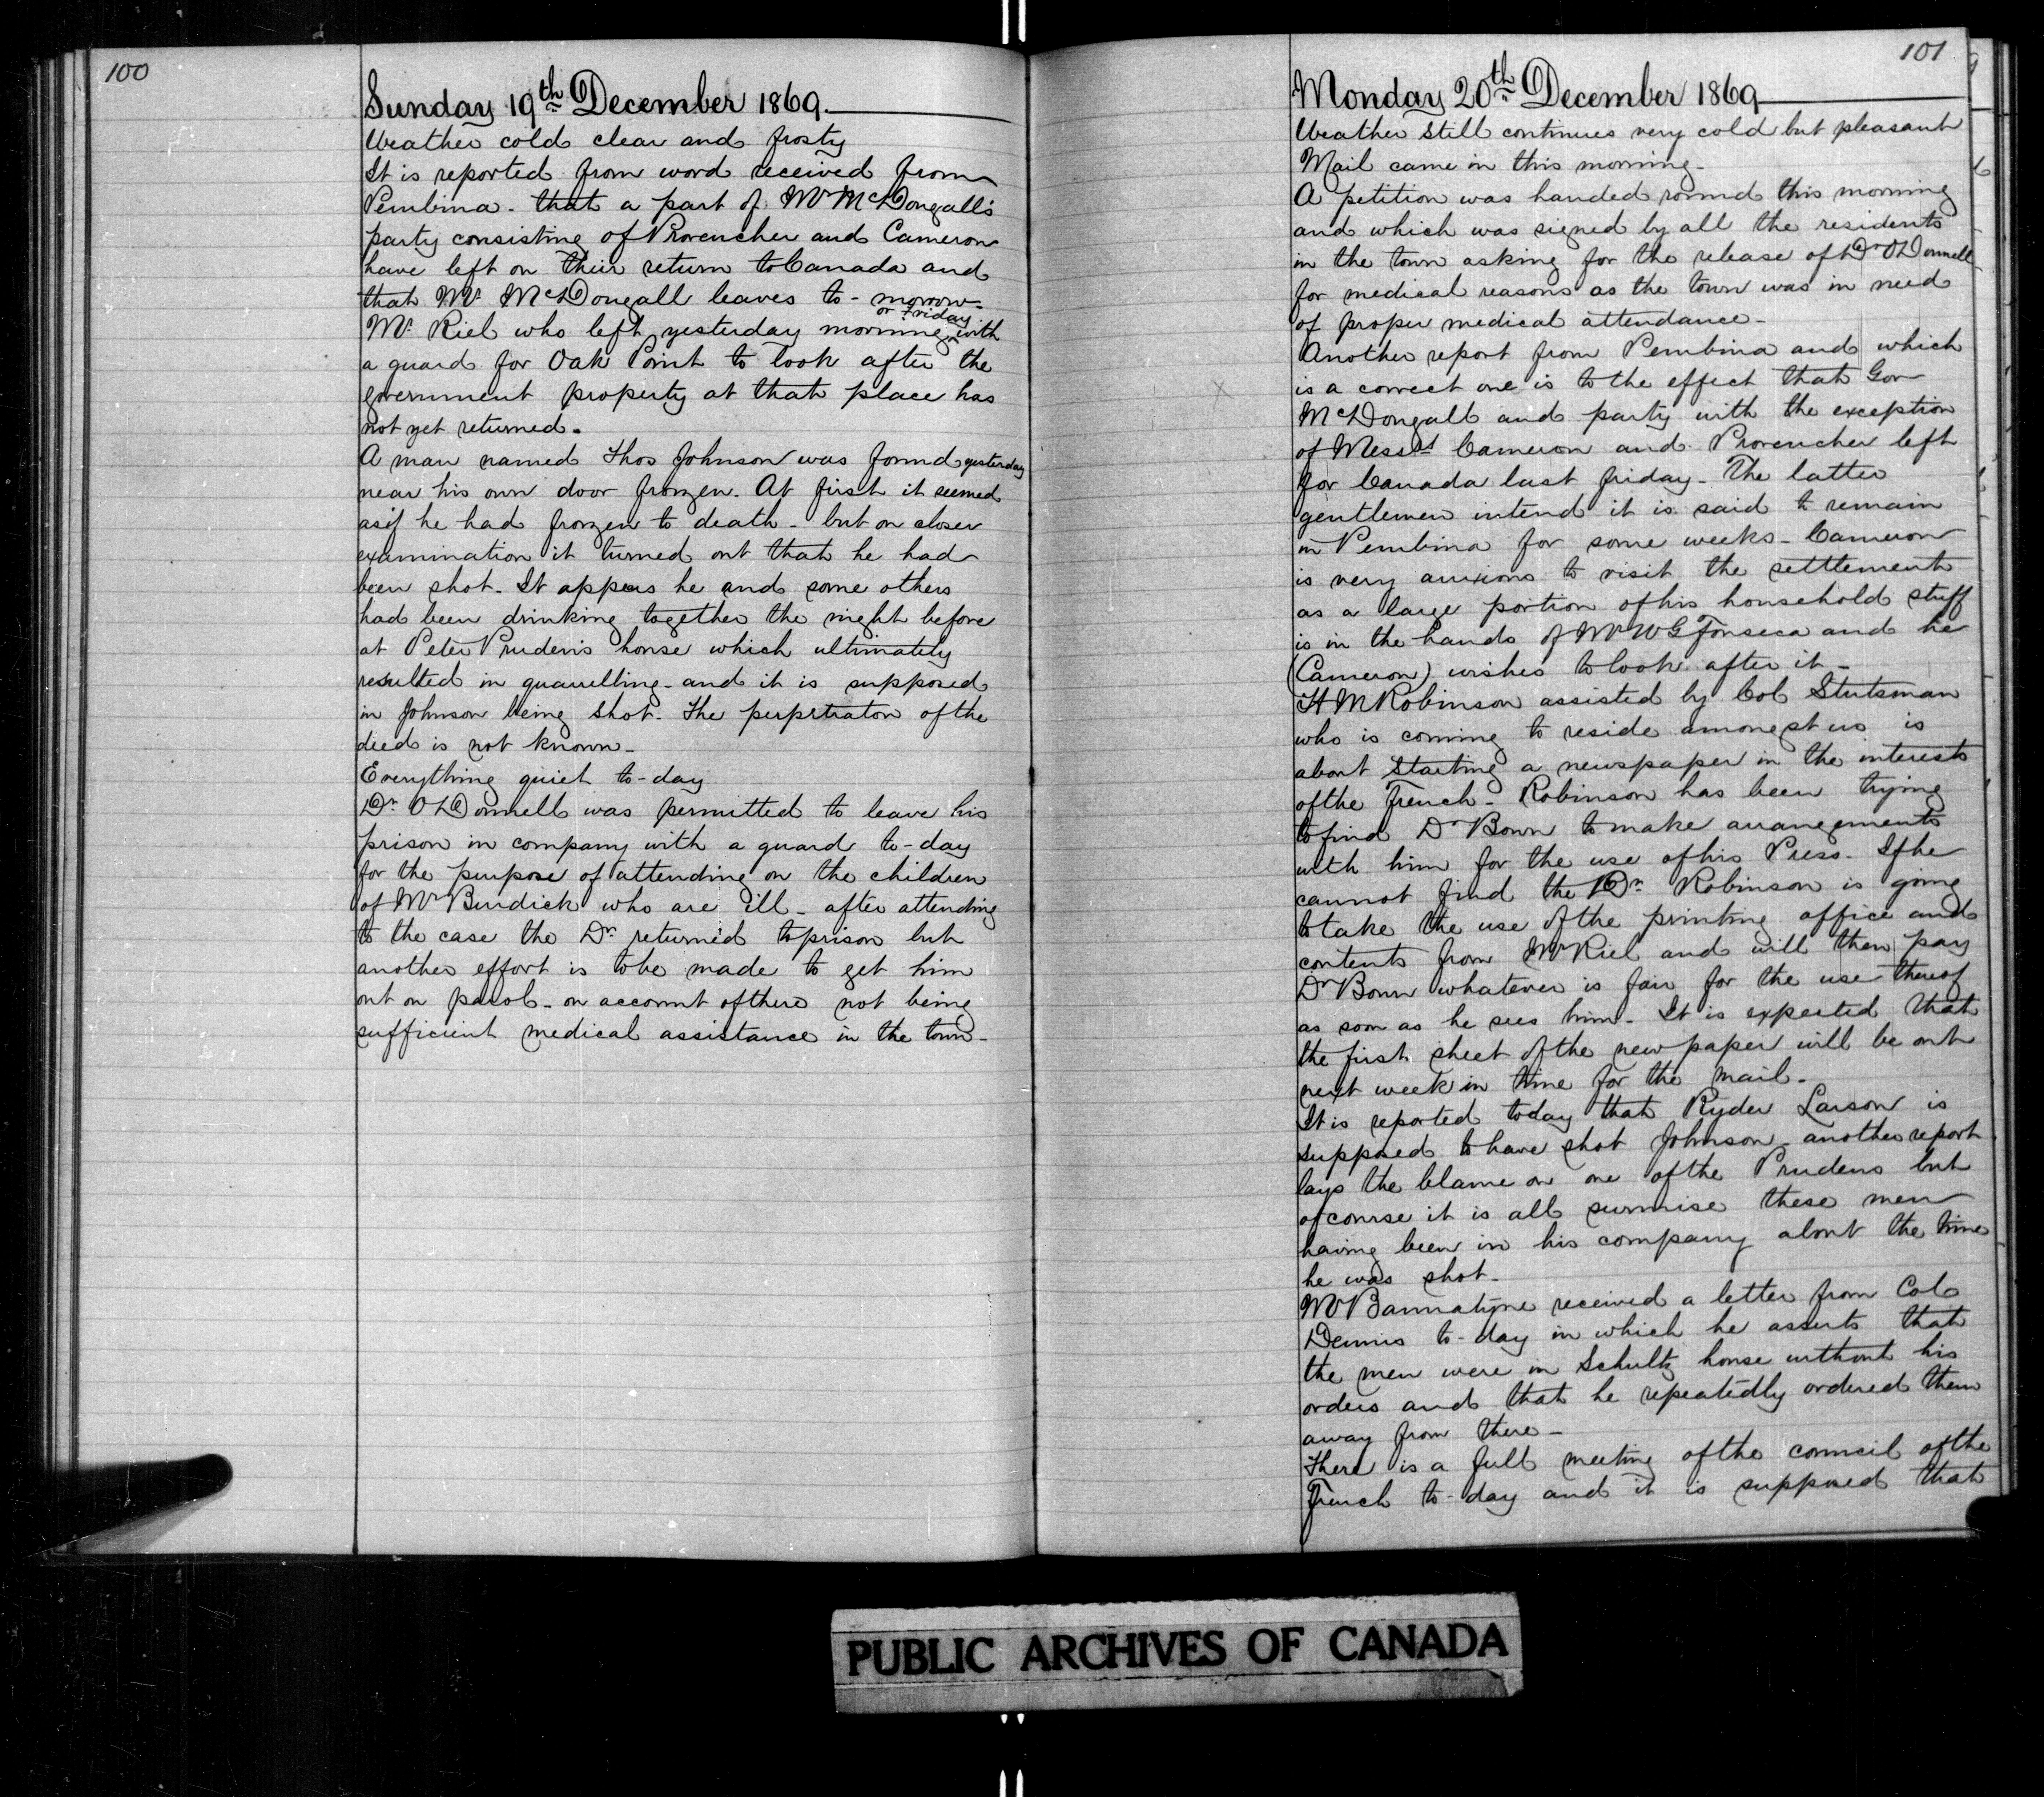 100
Sunday 19th December 1869.
Weather cold clear and frosty
It is reported from word received from
Pembina - that a part of Mr McDougall's
party consisting of Provencher and Cameron
have left on their return to Canada and
that Mr McDougall leaves to-morrow.
or Friday
Mr. Riel who left yesterday morning with
a guard for Oak Point to look after the
government property at that place has
not yet returned.
A man named Thos Johnson was found yesterday
near his own door frozen. At first it seemed
as if he had frozen to death - but on closer
examination it turned out that he had
been shot. It appears he and some others
had been drinking together the night before
at Peter Pruden's house which ultimately
resulted in quarrelling - and it is supposed
in Johnson being shot. The perpetrator of the
deed is not known -
Everything quiet to-day
Dr. O'Donnell was permitted to leave his
prison in company with a guard to-day
for the purpose of attending on the children
of Mr Burdick who are ill - after attending
to the case the Dr. returned to prison but
another effort is to be made to get him
out on parol - on account of there not being
sufficient medical assistance in the town -
101
Monday 20th December 1869
Weather still continues very cold but pleasant
Mail came in this morning -
A petition was handed round this morning
and which was signed by all the residents
in the town asking for the release of Dr O'Donnell
for medical reasons as the town was in need
of proper medical attendance -
Another report from Pembina and which
is a correct one is to the effect that Gov
McDougall and party with the exception
of Messrs Cameron and Provencher left
for Canada last friday - The latter
gentlemen intend it is said to remain
in Pembina for some weeks - Cameron
is very anxious to visit the settlement
as a large portion of his household stuff
is in the hands of Mr W G Fonseca and he
(Cameron) wishes to look after it -
H M Robinson assisted by Col Stutsman
who is coming to reside amongst us is
about starting a newspaper in the interests
of the French - Robinson has been trying
to find Dr Bown to make arrangements
with him for the use of his Press - If he
cannot find the Dr. Robinson is going
to take the use of the printing office and
contents from Mr Riel and will then pay
Dr Bown whatever is fair for the use thereof
as soon as he sees him - It is expected that
the first sheet of the new paper will be out
next week in time for the mail -
It is reported today that Ryder Larson is
supposed to have shot Johnson - another report
lays the blame on one of the Prudens but
of course it is all surmise these men
having been in his company about the time
he was shot -
Mr Bannatyne received a letter from Col
Dennis to-day in which he asserts that
the men were in Schultz house without his
orders and that he repeatedly ordered them
away from there -
There is a full meeting of the council of the
French to-day and it is supposed that
PUBLIC ARCHIVES OF CANADA